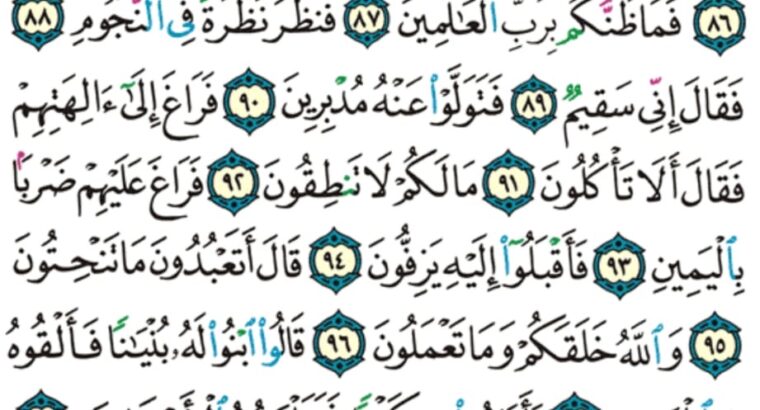 ٨٦ فَمَا ظَنُّكُم بِرَبِّ ٱلْعَٰلَمِينَ ٨٧ فَنَظَرَ نَظْرَةً فِى ٱلنُّجُومِ ٨٨
فَقَالَ إِنِّى سَقِيمٌ ٨٩ فَتَوَلَّوْا۟ عَنْهُ مُدْبِرِينَ ٩٠ فَرَاغَ إِلَىٰٓ ءَالِهَتِهِمْ
فَقَالَ أَلَا تَأْكُلُونَ ٩١ مَا لَكُمْ لَا تَنطِقُونَ ٩٢ فَرَاغَ عَلَيْهِمْ ضَرْبًۢا
بِٱلْيَمِينِ ٩٣ فَأَقْبَلُوٓا۟ إِلَيْهِ يَزِفُّونَ ٩٤ قَالَ أَتَعْبُدُونَ مَا تَنْحِتُونَ
٩٥ وَٱللَّهُ خَلَقَكُمْ وَمَا تَعْمَلُونَ ٩٦ قَالُوا۟ ٱبْنُوا۟ لَهُۥ بُنْيَٰنًا فَأَلْقُوهُ